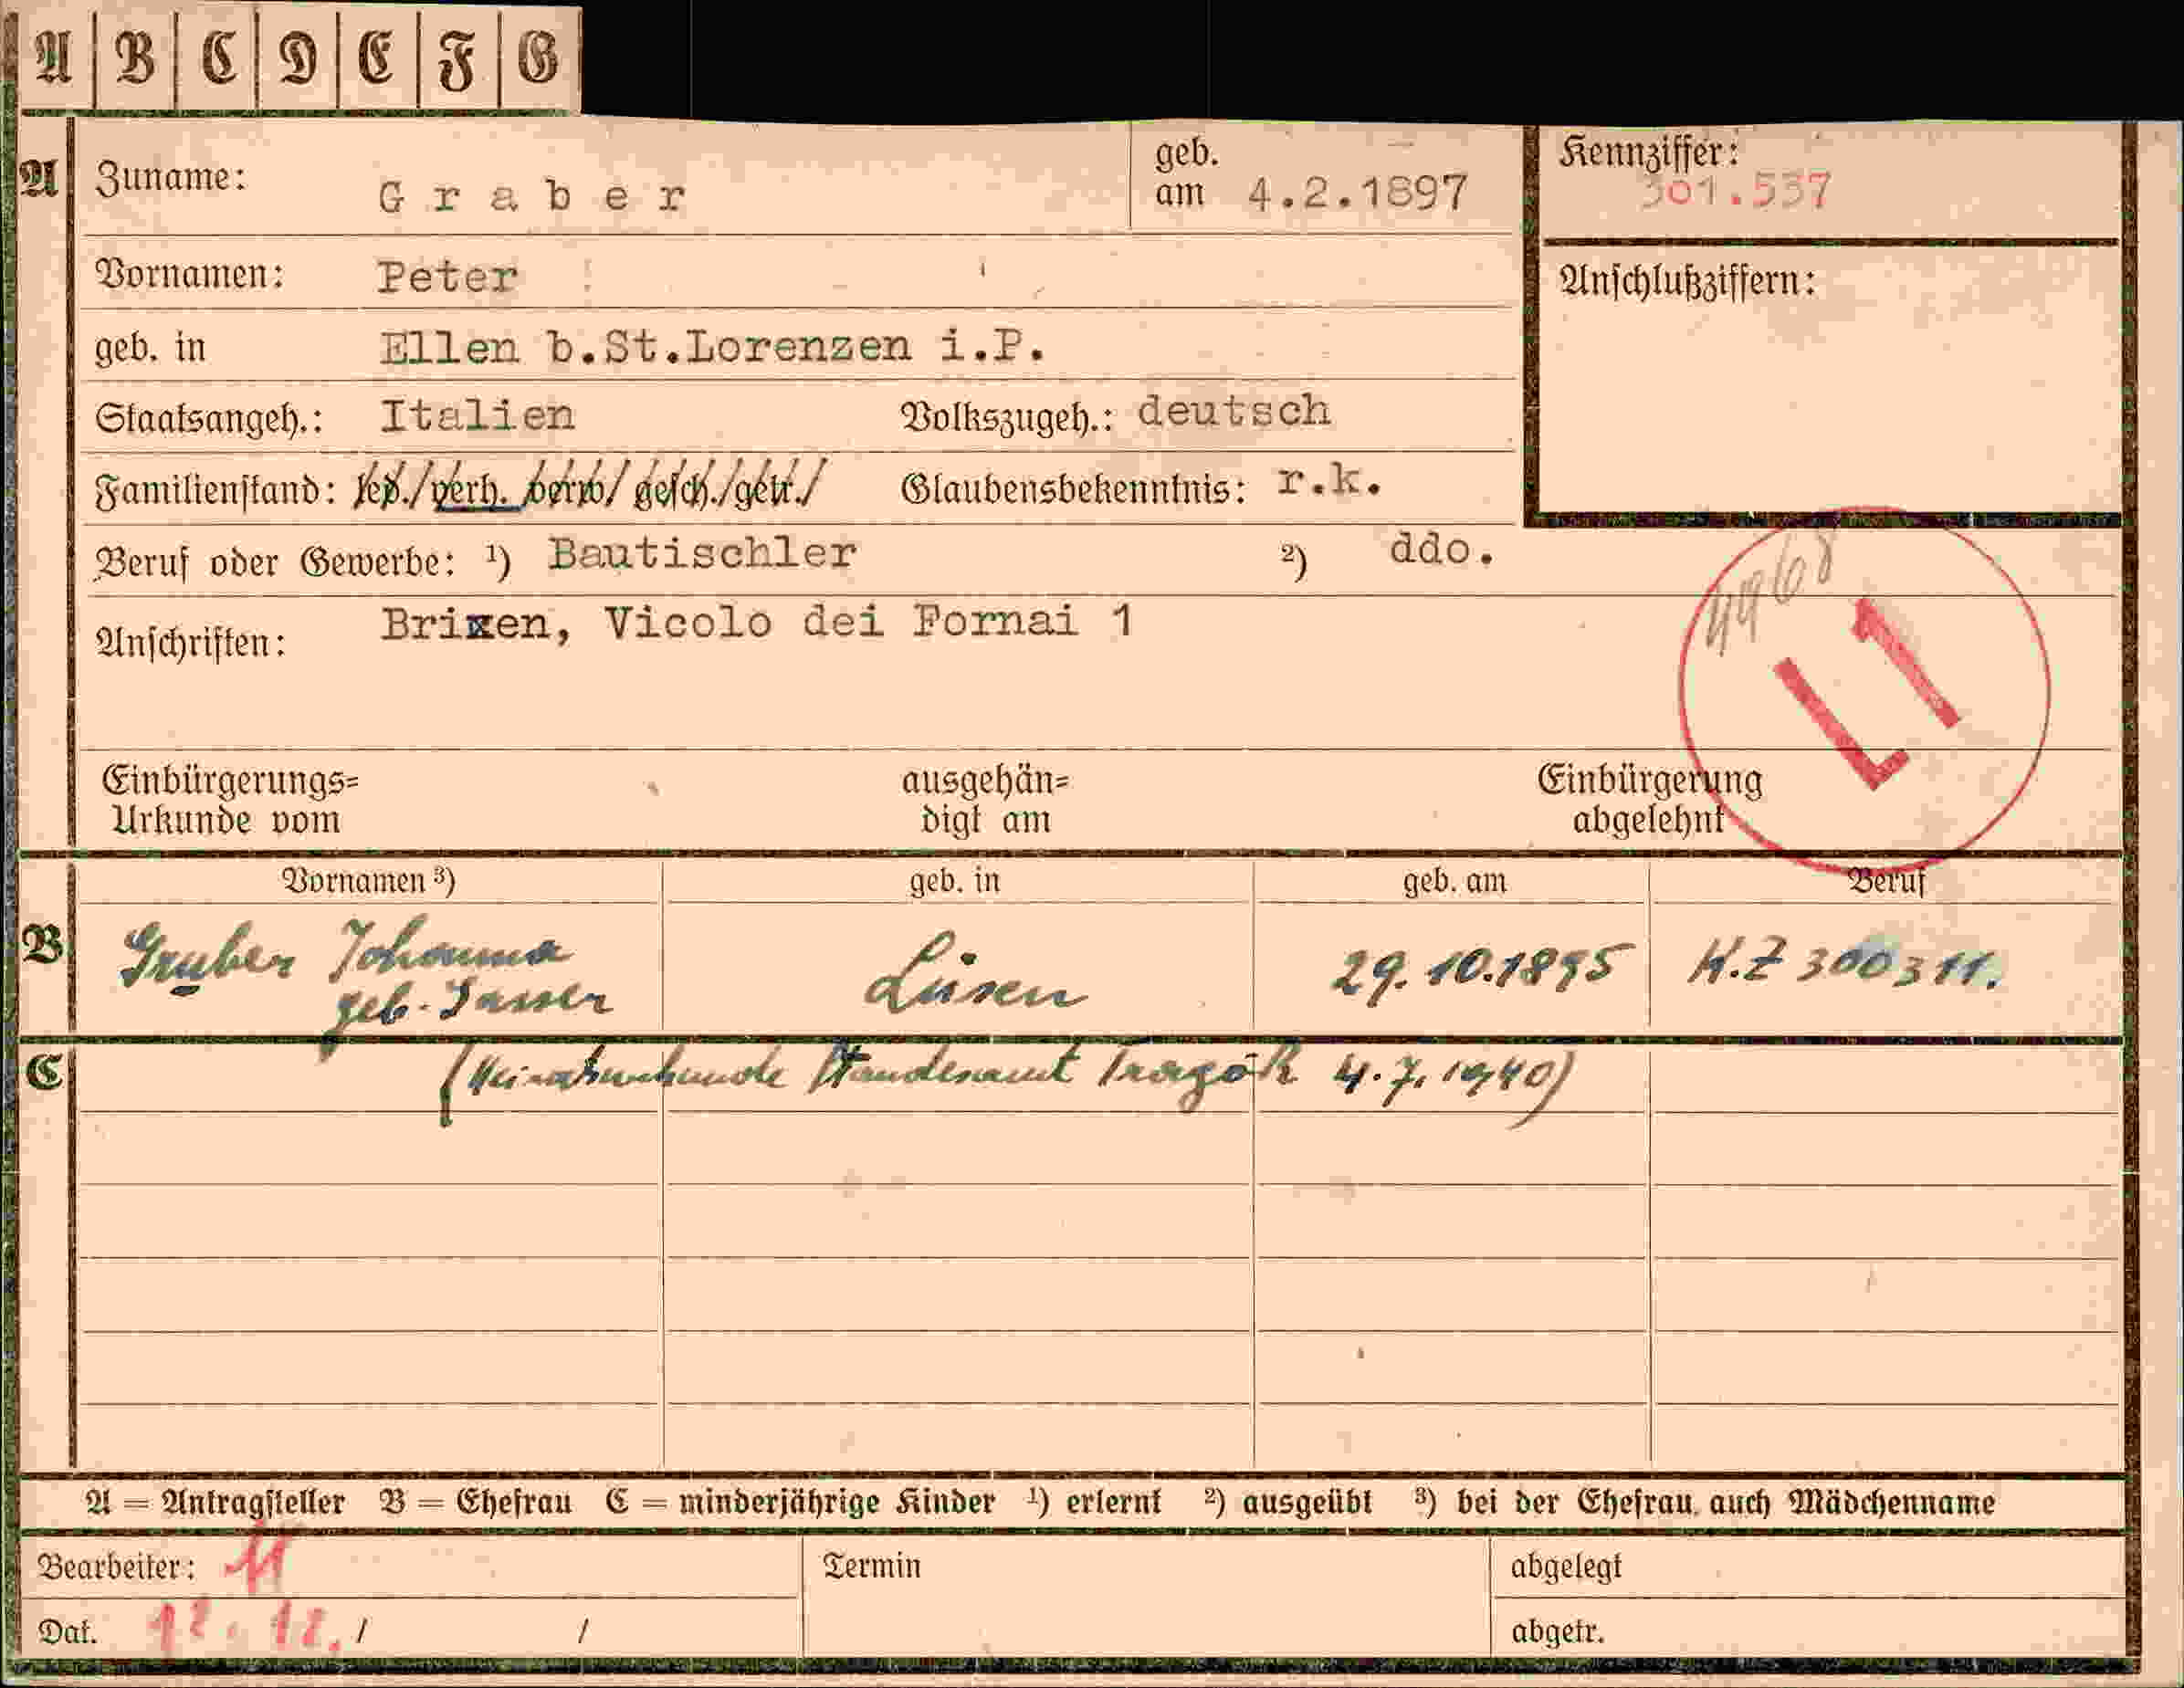 A B C D E F G
A Zuname: Graber geb. am 4.2.1897 Kennziffer: 301.537
Vornamen: Peter Anschlußziffern:
geb. in Ellen b.St.Lorenzen i.P.
Staatsangeh.: Italien Volkszugeh.: deutsch
Familienstand: led./verh. verw/gesch./getr./ Glaubensbekenntnis: r.k.
Beruf oder Gewerbe: ¹) Bautischler ²) ddo.
Anschriften: Brixen, Vicolo dei Fornai 1
L1
Einbürgerungs= ausgehän= Einbürgerung
Urkunde vom digt am abgelehnt
Vornamen ³) geb. in geb. am Beruf
B Gruber Johanna Lüsen 29.10.1895 K.Z 300311.
geb.
C (Heiratsurkunde Standesamt 4.7.1940)
A = Antragsteller B = Ehefrau C = minderjährige Kinder ¹) erlernt ²) ausgeübt ³) bei der Ehefrau, auch Mädchenname
Bearbeiter: Termin abgelegt
Dat. 12.12./ / abgetr.